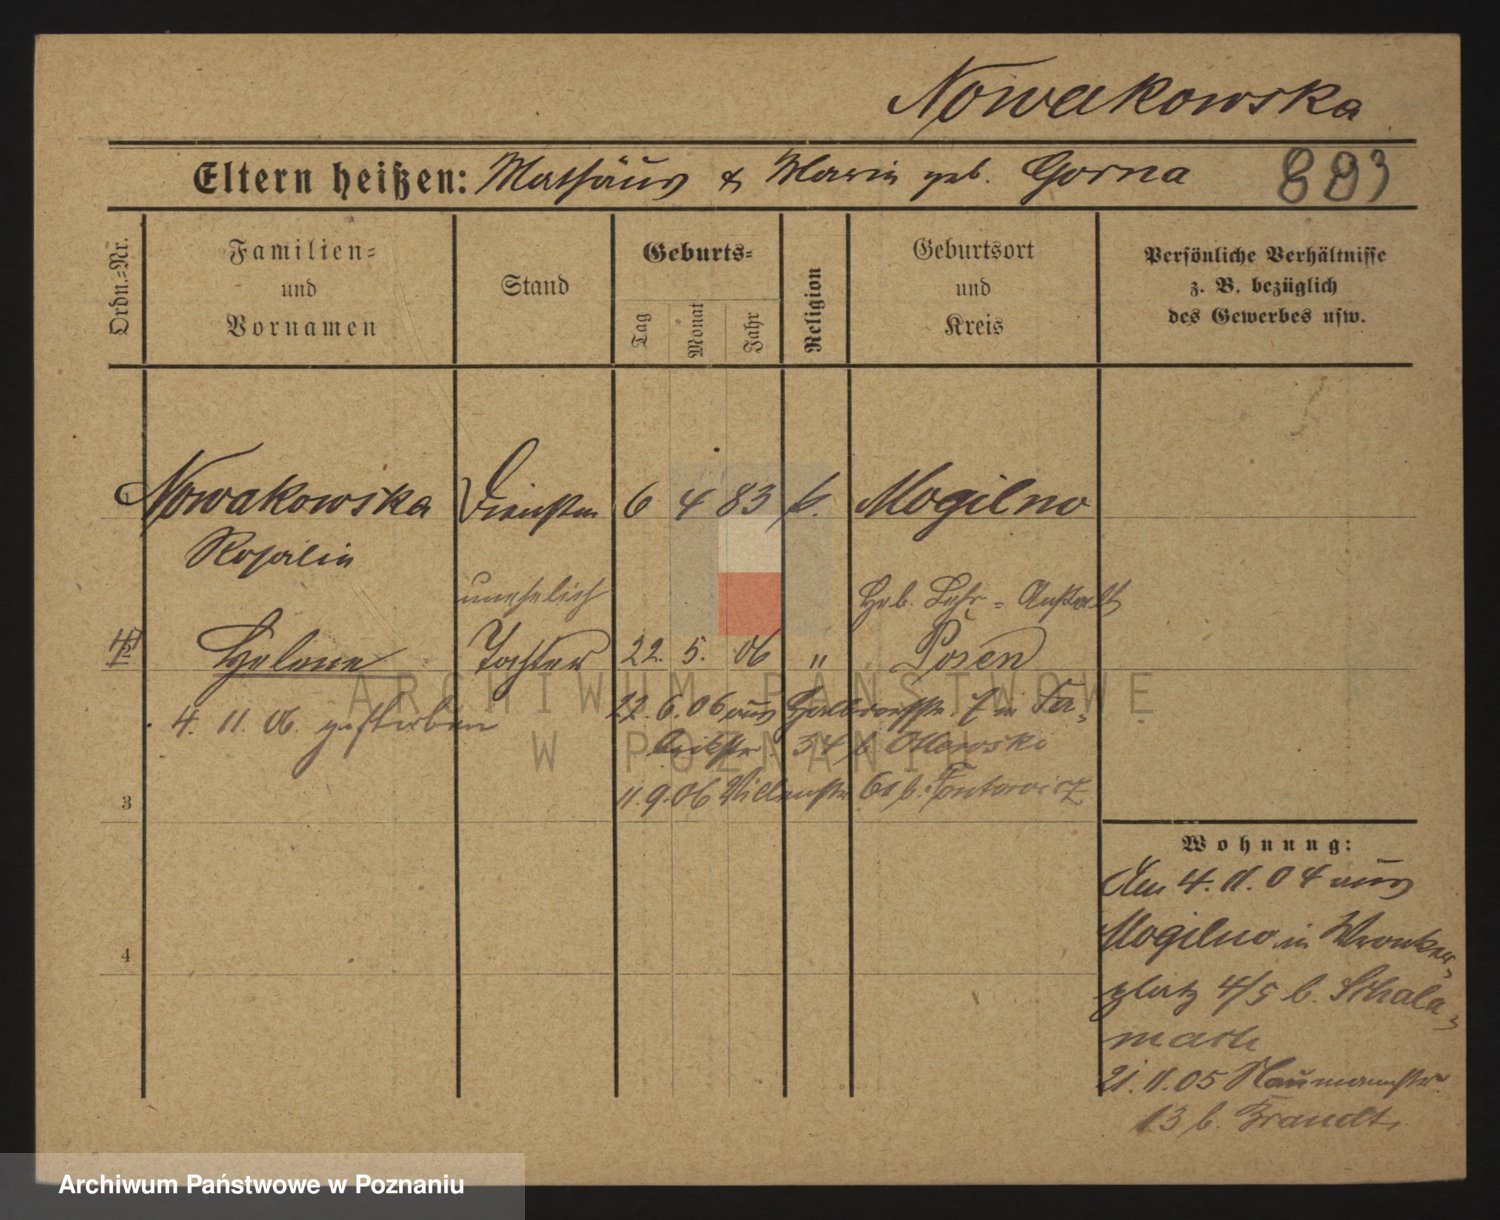 Nowakowska
Eltern heißen: Mathäus & Marie geb. Gorna 893
Ordn.-Nr.
Familien- und Vornamen
Stand
Geburts-
Tag
Monat
Jahr
Religion
Geburtsort und Kreis
Persönliche Verhältnisse z. B. bezüglich des Gewerbes usw.
1 Nowakowska Dienstm 6 4 83 k. Mogilno
Rosalie
unehelich Heb. Lehr-Anstalt
Helene Tochter 22. 5. 06 " Posen
4. 11. 06. gestorben
22. 6. 06 aus 7 in
34 b.
3
11. 9. 06 b.
Wohnung:
Am 4. 11. 04 aus
Mogilno in Wronker-
platz 4/5 b. Schala-
mach
21. 11. 05 Naumannstr.
13 b. Brandt.
4
ARCHIWUM PAŃSTWOWE
W POZNANIU
Archiwum Państwowe w Poznaniu